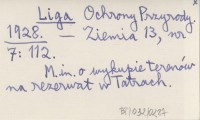 Liga Ochrony Przyrody.
1928. — Ziemia 13, nr
7: 112.
M.in. o wykupie terenów
na rezerwat w Tatrach.